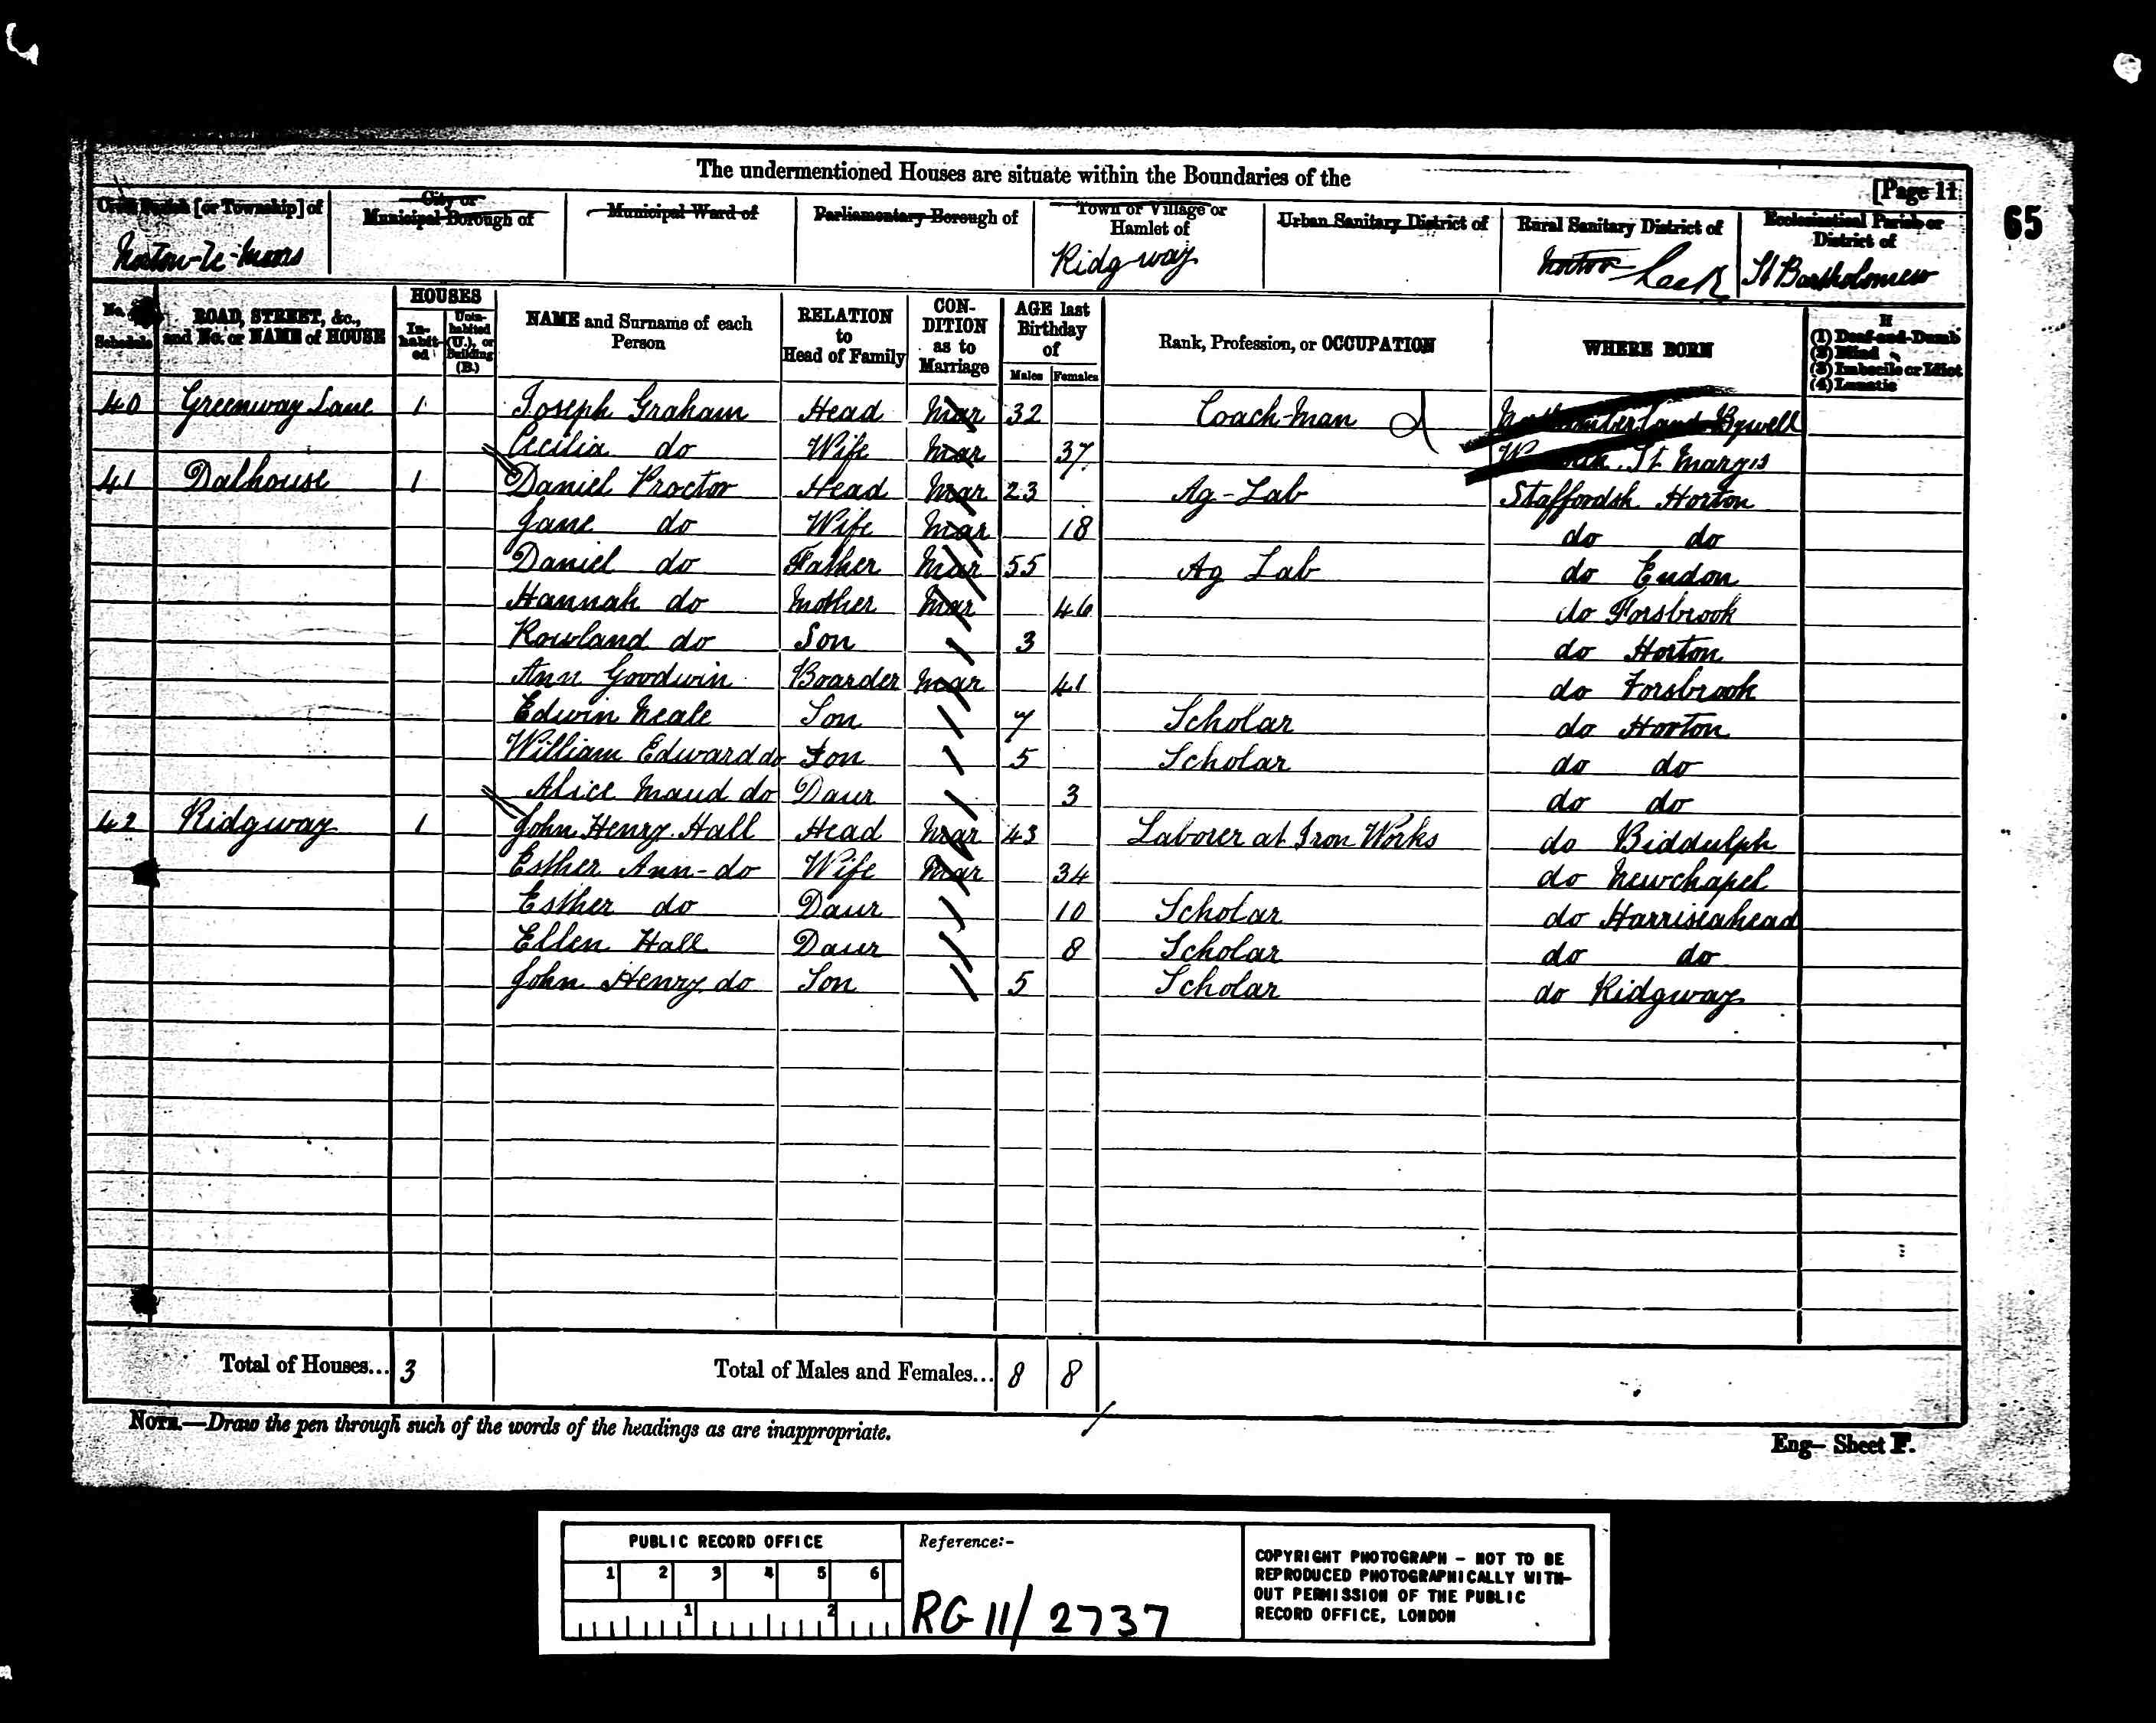 The undermentioned Houses are situate within the Boundaries of the
[Page 11
65
Civil Parish [or Township] of
City or Municipal Borough of
Municipal Ward of
Parliamentary Borough of
Town or Village or Hamlet of
Urban Sanitary District of
Rural Sanitary District of
Ecclesiastical Parish or District of
Norton-le-Moors
Ridgway
Norton Leek
St Bartholomew
No. Schedule
ROAD, STREET, &c., and No. or NAME of HOUSE
HOUSES
In-habit-ed
Unin-habited (U.), or Building (B.)
NAME and Surname of each Person
RELATION to Head of Family
CON-DITION as to Marriage
AGE last Birthday of
Males Females
Rank, Profession, or OCCUPATION
WHERE BORN
If
(1) Deaf-and-Dumb
(2) Blind
(3) Imbecile or Idiot
(4) Lunatic
40 Greenway Lane 1 Joseph Graham Head Mar 32 Coach-man Northumberland Bywell
Cecilia do Wife Mar 37 St Marys
41 Dalhouse 1 Daniel Proctor Head Mar 23 Ag-Lab Staffordsh Horton
Jane do Wife Mar 18 do do
Daniel do Father Mar 55 Ag Lab do Endon
Hannah do Mother Mar 46 do Forsbrook
Rowland do Son 3 do Horton
Ann Goodwin Boarder Mar 41 do Forsbrook
Edwin Neale Son 7 Scholar do Horton
William Edward do Son 5 Scholar do do
Alice Maud do Daur 3 do do
42 Ridgway 1 John Henry Hall Head Mar 43 Laborer at Iron Works do Biddulph
Esther Ann-do Wife Mar 34 do Newchapel
Esther do Daur 10 Scholar do Harriseahead
Ellen Hall Daur 8 Scholar do do
John Henry do Son 5 Scholar do Ridgway
Total of Houses... 3
Total of Males and Females... 8 8
NOTE.—Draw the pen through such of the words of the headings as are inappropriate.
Eng— Sheet F.
PUBLIC RECORD OFFICE
1 2 3 4 5 6
1 2
Reference:-
RG 11/2737
COPYRIGHT PHOTOGRAPH - NOT TO BE
REPRODUCED PHOTOGRAPHICALLY WITH-
OUT PERMISSION OF THE PUBLIC
RECORD OFFICE, LONDON